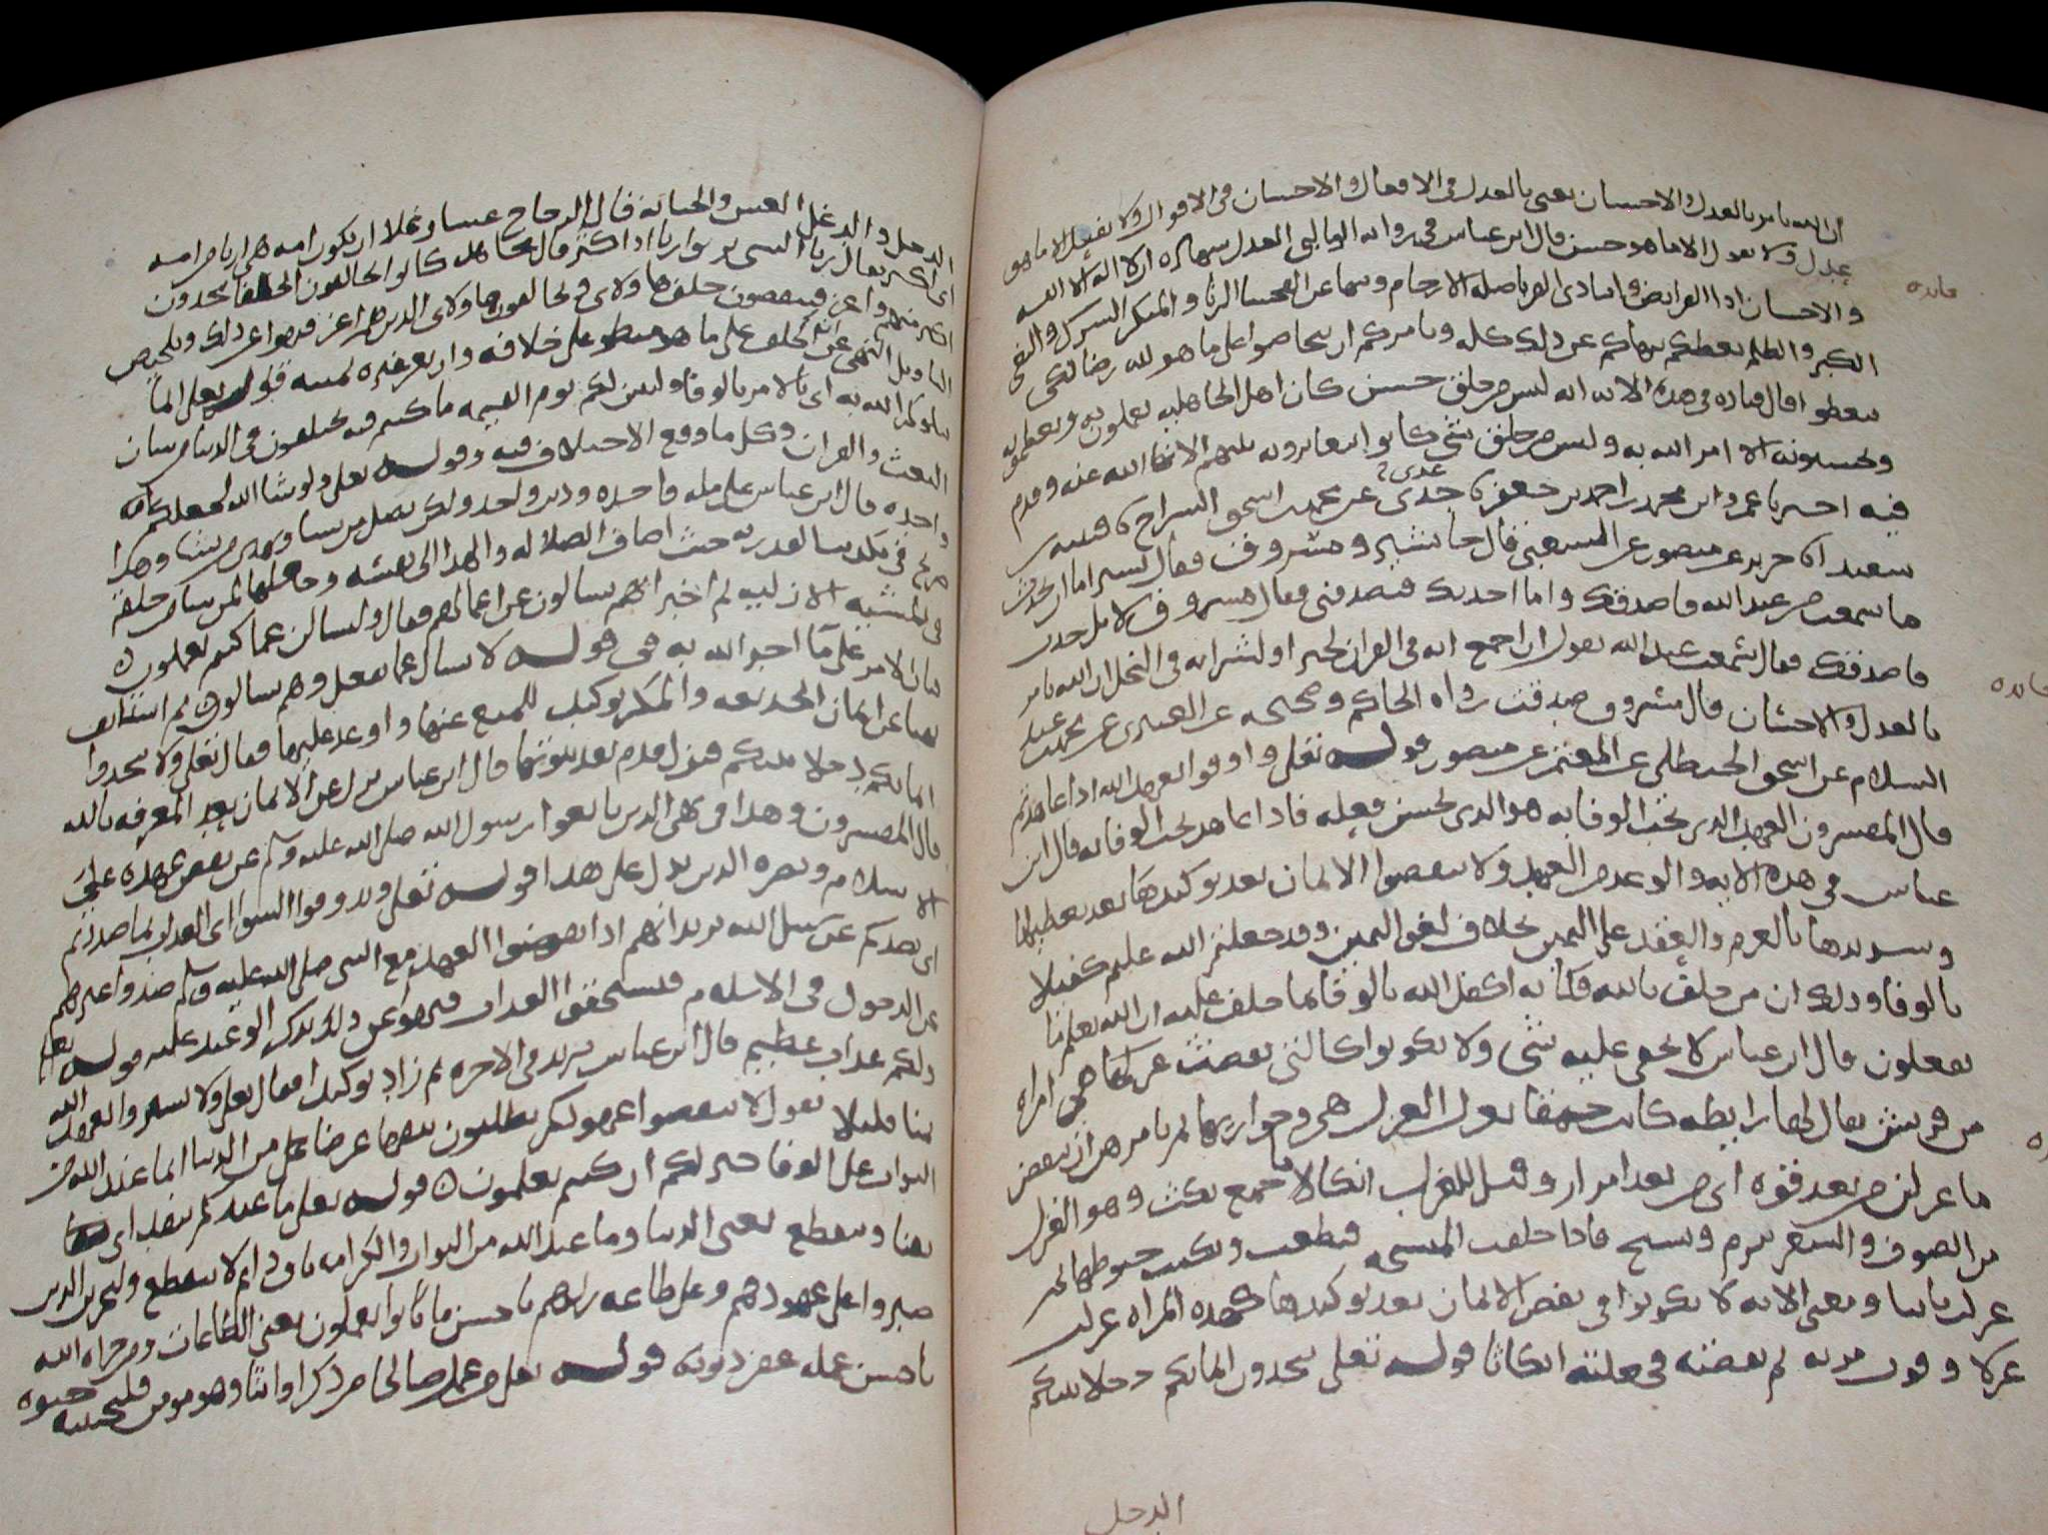 ان الله يامر بالعدل والاحسان يعني بالعدل في الافعال والاحسان في الاقوال ولا يفعل الا ما هو
عدل ولا يقول الا ما هو حسن قال ابن عباس في رواية الوالبي العدل شهادة ان لا اله الا الله
والاحسان ادا الفرايض وايتا ذي القربا صلة الارحام وينها عن الفحشا الزنا والمنكر الشرك والبغي
الكبر والظلم يعظكم ينهاكم عن ذلك كله ويامركم ان تحاضوا على ما هو لله رضا لكي
تتعظوا قال قتاده في هذه الاية انه ليس من خلق حسن كان اهل الجاهلية يعملون به ويعظمونه
ويحسنونه الا امر الله به وليس من خلق شي كانوا يتعايرونه بينهم الا نها الله عنه وقدم
فيه اخبرنا عمرو ابن محمد بن احمد بن جعفر نا جدي عن محمد بن اسحق السراج نا قتيبه بن
سعيد نا جرير عن منصور عن الشعبي قال جا شتير ومسروق فقال شتير اما ان تحدث
ما سمعت من عبد الله فاصدقك واما احدثك فتصدقني فقال مسروق لا بل حدث
فاصدقك فقال سمعت عبد الله يقول ان اجمع ايه في القران لخير او لشر ايه في النحل ان الله يامر
بالعدل والاحسان قال مسروق صدقت رواه الحاكم في صحيحه عن العنبري عن محمد بن عبد
السلام عن اسحق الحنظلي عن المعتمر عن منصور قوله تعلى واوفوا بعهد الله اذا عاهدتم
قال المفسرون العهد الذي يجب الوفا به هو الذي يحسن فعله فاذا عاهد يجب الوفا به قال ابن
عباس في هذه الاية والوعد من العهد ولا تنقضوا الايمان بعد توكيدها بعد تعظيمها
وتشديدها بالعزم والعقد على اليمين بخلاف لغو اليمين وقد جعلتم الله عليكم كفيلا
بالوفا وذلك ان من حلف بالله فكانه اكفل الله بالوفا بما حلف عليه ان الله يعلم ما
تفعلون قال ابن عباس لا يخفى عليه شي ولا تكونوا كالتي نقضت غزلها هي امراه
من قريش يقال لها رايطه كانت حمقا تغزل الغزل هي وجواريها ثم تامرهن ان ينقضن
ما غزلن من بعد قوه اي من بعد امرار وفتل للغزل انكاثا جمع نكث وهو الغزل
من الصوف والشعر يبرم وينسج فاذا خلقت النسيجة قطعت ونكثت خيوطها ثم
غزلت ثانيا ومعنى الاية لا تكونوا في نقض الايمان بعد توكيدها كهذه المراه غزلت
غزلا وقوت مرته ثم نقضته فجعلته انكاثا قوله تعلى تتخذون ايمانكم دخلا بينكم
الدخل
الدخل والدغل الغش والخيانة قال الزجاج غشا وغلا ان تكون امه هي اربا من امه
اي اكثر يقال ربا الشي يربوا ربا اذا كثر قال مجاهد كانوا يحالفون الحلفا فيجدون
اكثر منهم واعز فينقضون حلف هاولاي ويحالفون هاولاي الذين هم اعز فنهوا عن ذلك وتلخيص
التاويل النهي عن ان يحلف على ما هو منطو على خلافه وان يغر غيره بيمينه قوله تعلى انما
يبلوكم الله به اي بالامر بالوفا وليبين لكم يوم القيمه ما كنتم فيه تختلفون في الدنيا من شان
البعث والقران وكل ما وقع الاختلاف فيه وقوله تعلى ولو شا الله لجعلكم امه
واحده قال ابن عباس على مله واحده ودين واحد ولكن يضل من يشا ويهدي من يشا وهذا
صريح في تكذيب القدريه حيث اضاف الضلاله والهدا الى نفسه وجعلها لمن يشا من خلقه
في المشيه الازليه ثم اخبر انهم يسالون عن اعمالهم فقال ولتسالن عما كنتم تعملون
بيان الامر على ما اخبر الله به في قوله لا يسال عما يفعل وهم يسالون ثم استانف
نهيا عن ايمان الخديعه والمكر توكيدا للمنع عنها واوعد عليها فقال تعلى ولا تتخذوا
ايمانكم دخلا بينكم فتزل قدم بعد ثبوتها قال ابن عباس تزل عن الايمان بعد المعرفه بالله
قال المفسرون وهذا في نهي الذين بايعوا رسول الله صلى الله عليه وسلم عن نقض عهده على
الاسلام ونصره الدين يدل على هذا قوله تعلى وتذوقوا السوا اي العذاب بما صددتم
اي بصدكم عن سبيل الله يريد انهم اذا نقضوا العهد مع النبي صلى الله عليه وسلم صدوا غيرهم
عن الدخول في الاسلام فيستحقوا العذاب فنهوا عن ذلك بذكر الوعيد عليه قوله تعلى
ولكم عذاب عظيم قال ابن عباس يريد في الاخره ثم زاد توكيدا فقال تعلى ولا تشتروا بعهد الله
ثمنا قليلا يقول لا تنقضوا عهودكم تطلبون بنقضها عرضا من الدنيا انما عند الله من
الثواب على الوفا خير لكم ان كنتم تعلمون قوله تعلى ما عندكم ينفد اي
يفنا وينقطع يعني الدنيا وما عند الله من الثواب والكرامه باق دايم لا ينقطع وليجزين الذين
صبروا على عهودهم وعلى طاعه ربهم باحسن ما كانوا يعملون يعني الطاعات ومن جزاه الله
باحسن عمله غفر ذنوبه قوله تعلى من عمل صالحا من ذكر او انثا وهو مومن فلنحيينه حيوه
فايده
فايده